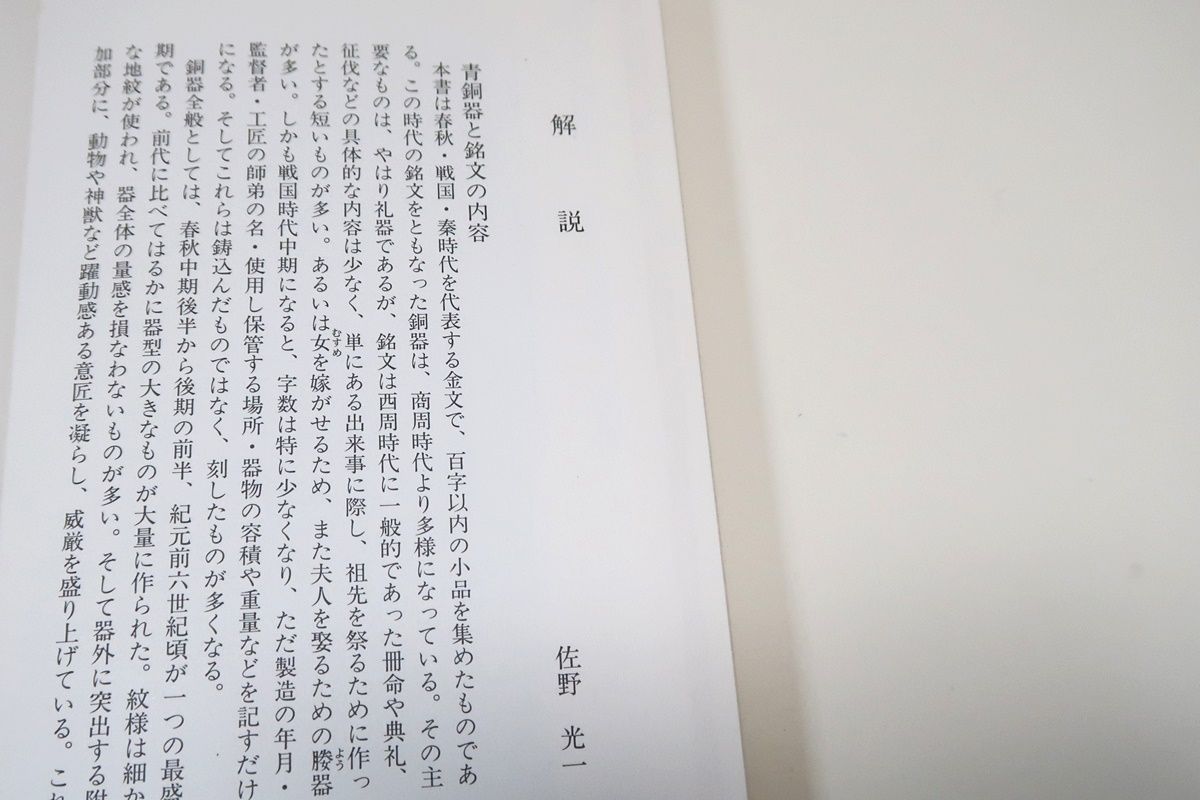 解説
佐野光一
青銅器と銘文の内容
本書は春秋・戦国・秦時代を代表する金文で、百字以内の小品を集めたものであ
る。この時代の銘文をともなった銅器は、商周時代より多様になっている。その主
要なものは、やはり礼器であるが、銘文は西周時代に一般的であった冊命や典礼、
征伐などの具体的な内容は少なく、単にある出来事に際し、祖先を祭るために作っ
たとする短いものが多い。あるいは女むすめを嫁がせるため、また夫人を娶るための媵よう器
が多い。しかも戦国時代中期になると、字数は特に少なくなり、ただ製造の年月・
監督者・工匠の師弟の名・使用し保管する場所・器物の容積や重量などを記すだけ
になる。そしてこれらは鋳込んだものではなく、刻したものが多くなる。
銅器全般としては、春秋中期後半から後期の前半、紀元前六世紀頃が一つの最盛
期である。前代に比べてはるかに器型の大きなものが大量に作られた。紋様は細か
な地紋が使われ、器全体の量感を損なわないものが多い。そして器外に突出する附
加部分に、動物や神獣など躍動感ある意匠を凝らし、威厳を盛り上げている。これ